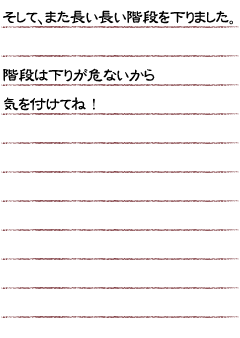 そして、また長い長い階段を下りました。
階段は下りが危ないから
気を付けてね！